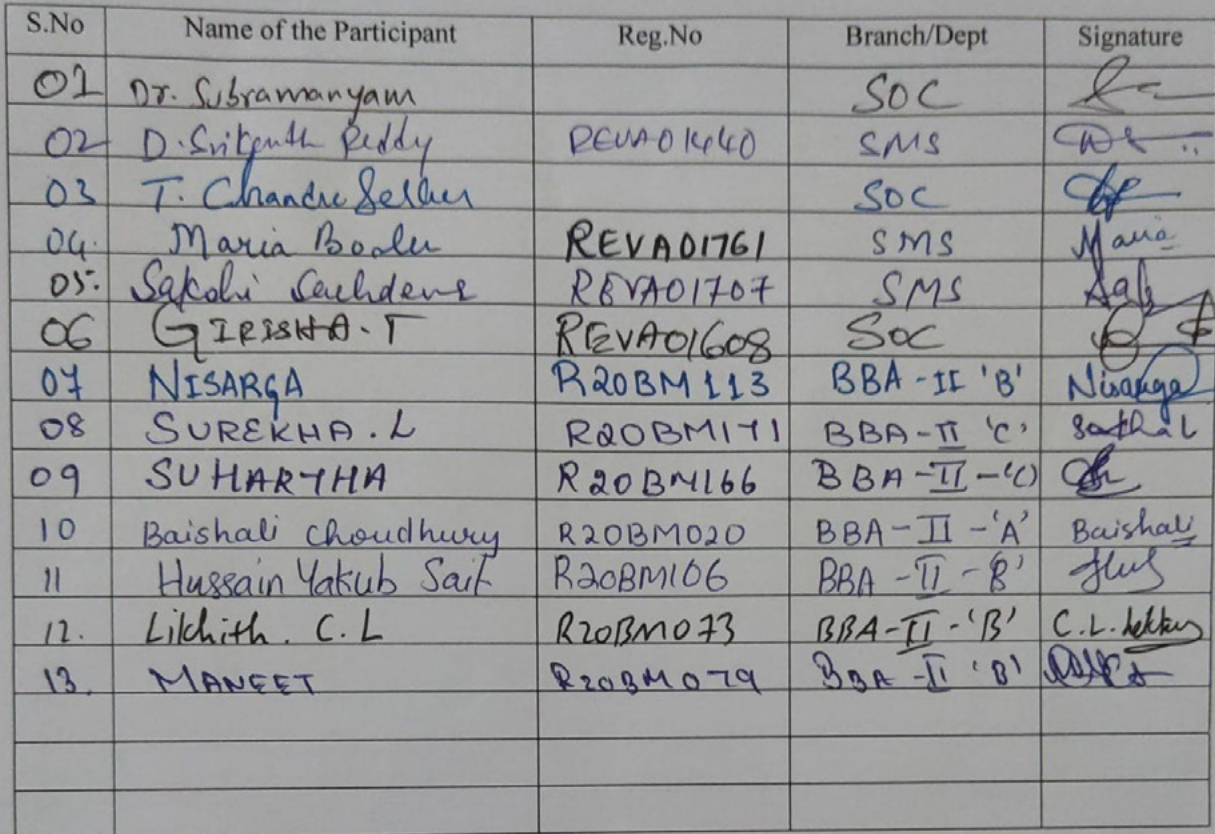 S.No Name of the Participant Reg.No Branch/Dept Signature
01 Dr. Subramanyam SOC
02 D. Srikanth Reddy REVA01440 SMS
03 T. Chandra Sekher SOC
04. Maria REVA01761 SMS Maria
05. Sakshi Sachdeva REVA01707 SMS
06 GIRISHA.T REVA01608 SOC
07 NISARGA R20BM113 BBA-II 'B' Nisarga
08 SUREKHA.L R20BM171 BBA-II 'C'
09 SUHARTHA R20BM166 BBA-II-'C'
10 Baishali Choudhury R20BM020 BBA-II-'A' Baishali
11 Hussain Yakub Sait R20BM106 BBA-II-B'
12. Likhith. C.L R20BM073 BBA-II-'B' C.L.
13. MANEET R20BM079 BBA-II 'B'